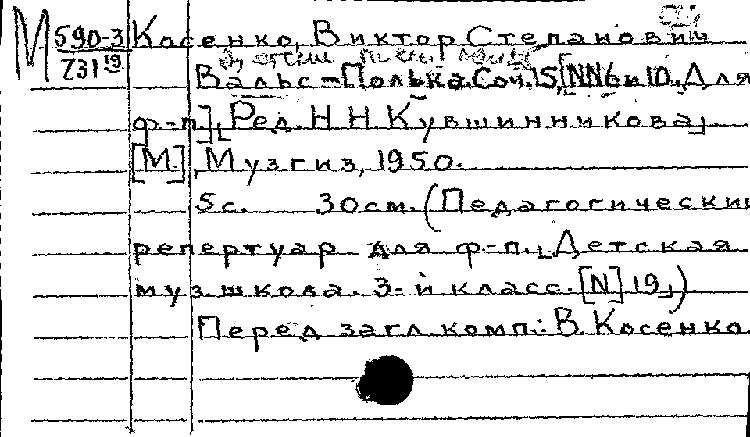 М 590-3 Косенко, Виктор Степанович
731 19
Вальс – Полька. Соч. 15, [NN 6 и 10. Для
ф-п.], Ред. Н. Н. Кувшинникова,
[М.], Музгиз, 1950.
5 с. 30 см. (Педагогический
репертуар для ф-п. Детская
муз. школа. 3-й класс. [N] 19,)
Перед загл. комп.: В. Косенко.